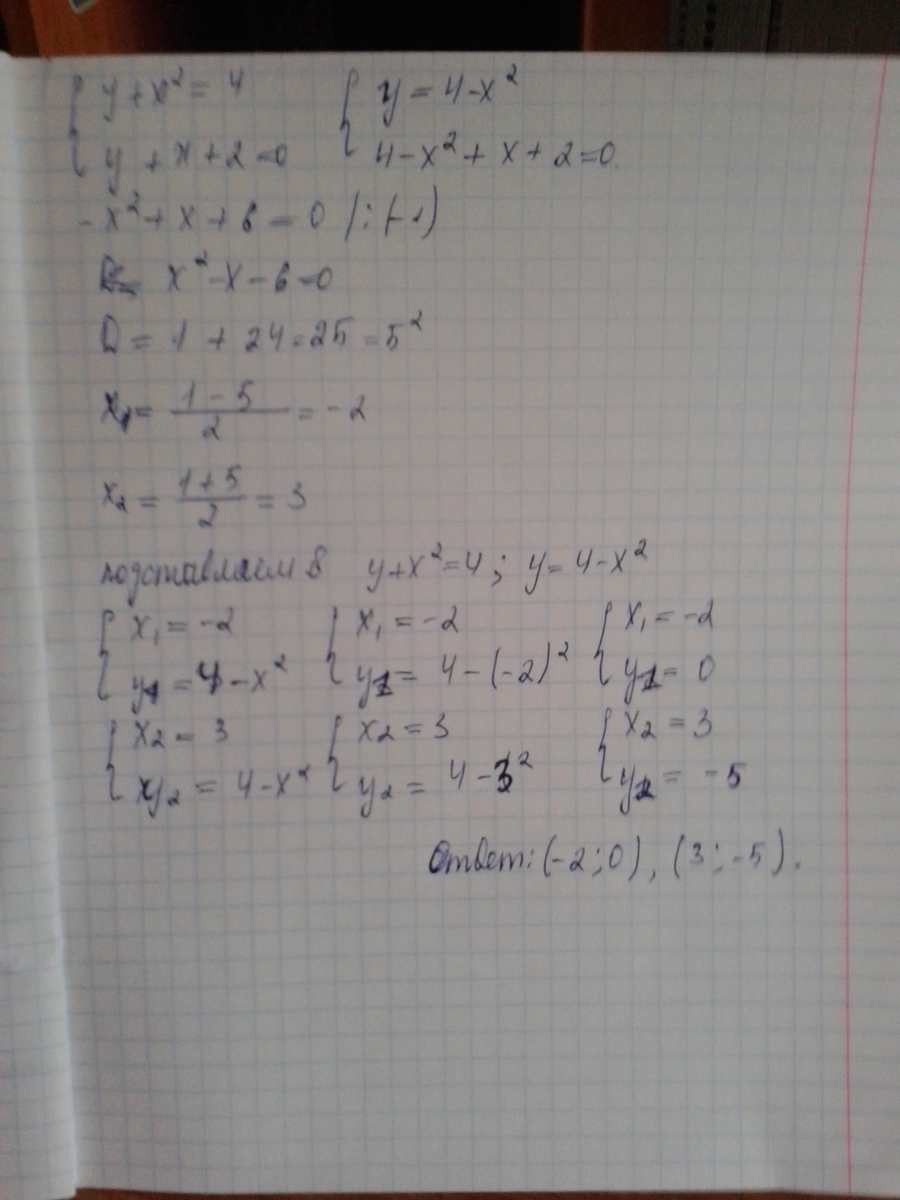 { y + x² = 4 { y = 4 - x²
{ y + x + 2 = 0 { 4 - x² + x + 2 = 0.
- x² + x + 6 = 0 | : (-1)
x² - x - 6 = 0
D = 1 + 24 = 25 = 5²
x₁ = (1 - 5)/2 = -2
x₂ = (1 + 5)/2 = 3
подставляем в y + x² = 4 ; y = 4 - x²
{ x₁ = -2 { x₁ = -2 { x₁ = -2
{ y₁ = 4 - x² { y₁ = 4 - (-2)² { y₁ = 0
{ x₂ = 3 { x₂ = 3 { x₂ = 3
{ y₂ = 4 - x² { y₂ = 4 - 3² { y₂ = -5
Ответ: (-2 ; 0), (3 ; -5).